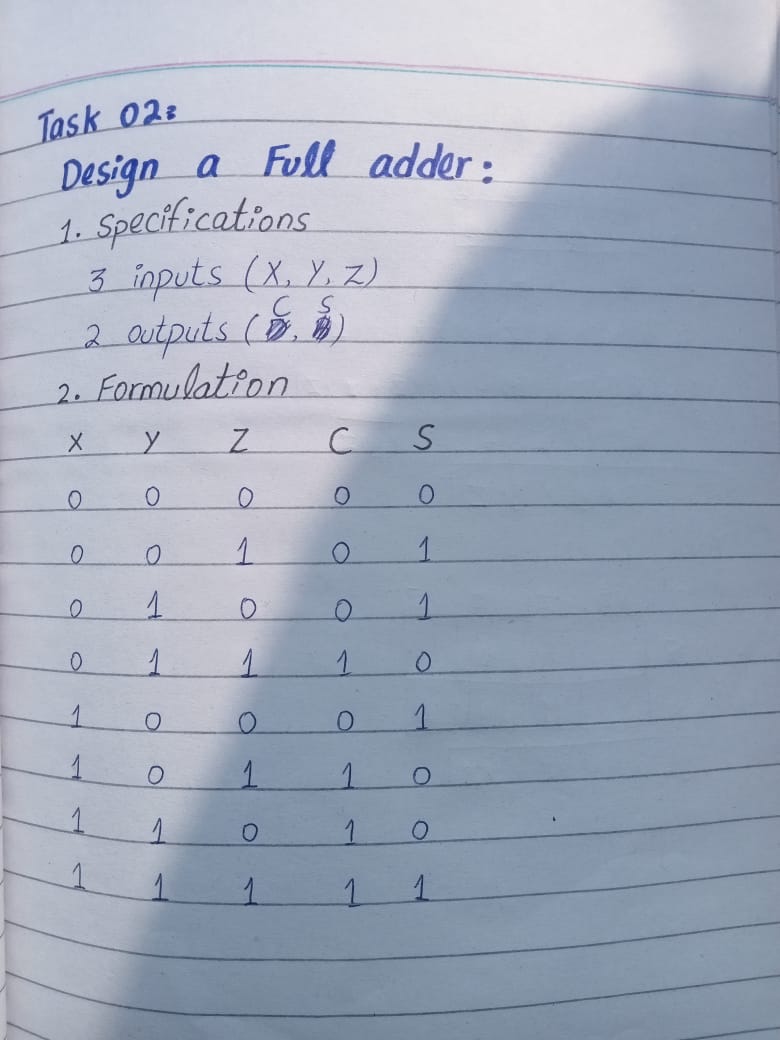 Task 02:
Design a Full adder:
1. Specifications
3 inputs (X, Y, Z)
2 outputs (C, S)
2. Formulation
X Y Z C S
0 0 0 0 0
0 0 1 0 1
0 1 0 0 1
0 1 1 1 0
1 0 0 0 1
1 0 1 1 0
1 1 0 1 0
1 1 1 1 1